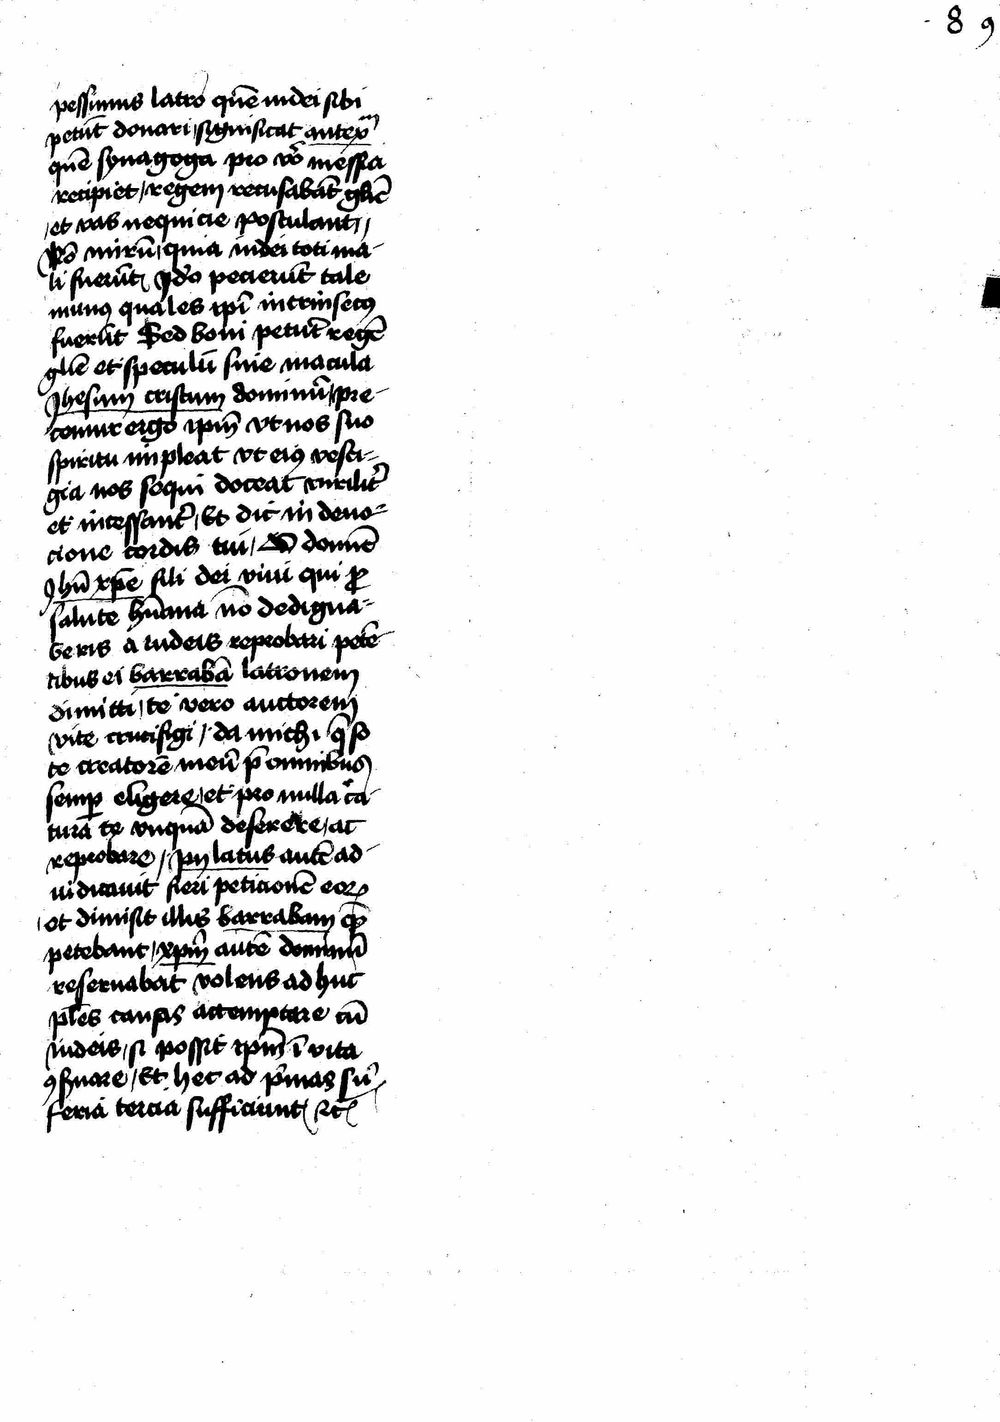 89
pessimus latro quē iudei sibi
petūt donari / significat antexp̄m
quē synagoga pro vō messia
recipiet / regem recusabāt gl̄ie
et vas nequicie postulant /
Nō mirū / quia iudei toti ma-
li fuerūt / Ido petierūt tale
munꝰ quales ip̄i intrinsecꝰ
fuerūt Sed boni petūt regē
gl̄ie et speculū sine macula
Jhesum cristum dominū / pre-
cemur ergo ip̄m vt nos suo
spiritu impleat vt eiꝰ vesti-
gia nos sequi doceat virilit̄
et incessant̄ / Et dic in deuo-
cione cordis tui / O domīe
Jhū xp̄e fili dei viui qui ꝓ
salute hūana nō dedigna-
beris a iudeis reprobari petē-
tibus ei barrabā latronem
dimitti / te vero auctorem
vite crucifigi / da michi q̄so
te creatorē meū p̄ omnibus
semꝑ eligere / et pro nulla c̄a-
tura te vnquā deserere / ac
reprobare / pylatus autē ad-
iudicauit fieri peticionē eoꝝ
et dimisit illis barrabam quē
petebant / xp̄m autē dominū
reseruabat volens adhuc
pl̄es causas attemptare cū
iudeis / si possit ip̄m ī vita
ꝯẜuare / Et hec ad p̄mas sū
feria tercia sufficiunt / ⁊c̄